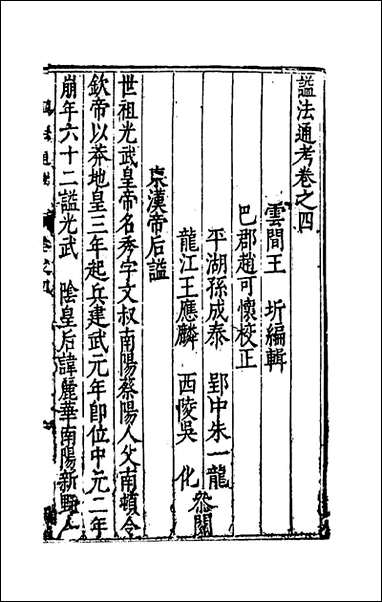 諡法通考卷之四
雲間王 圻編輯
巴郡趙可懷校正
平湖孫成泰 郢中朱一龍
龍江王應麟 西陵吳 化 叅閱
東漢帝后諡
世祖光武皇帝名秀字文叔南陽蔡陽人父南頓令
欽帝以莽地皇三年起兵建武元年卽位中元二年
崩年六十二諡光武 陰皇后諱麗華南陽新野人